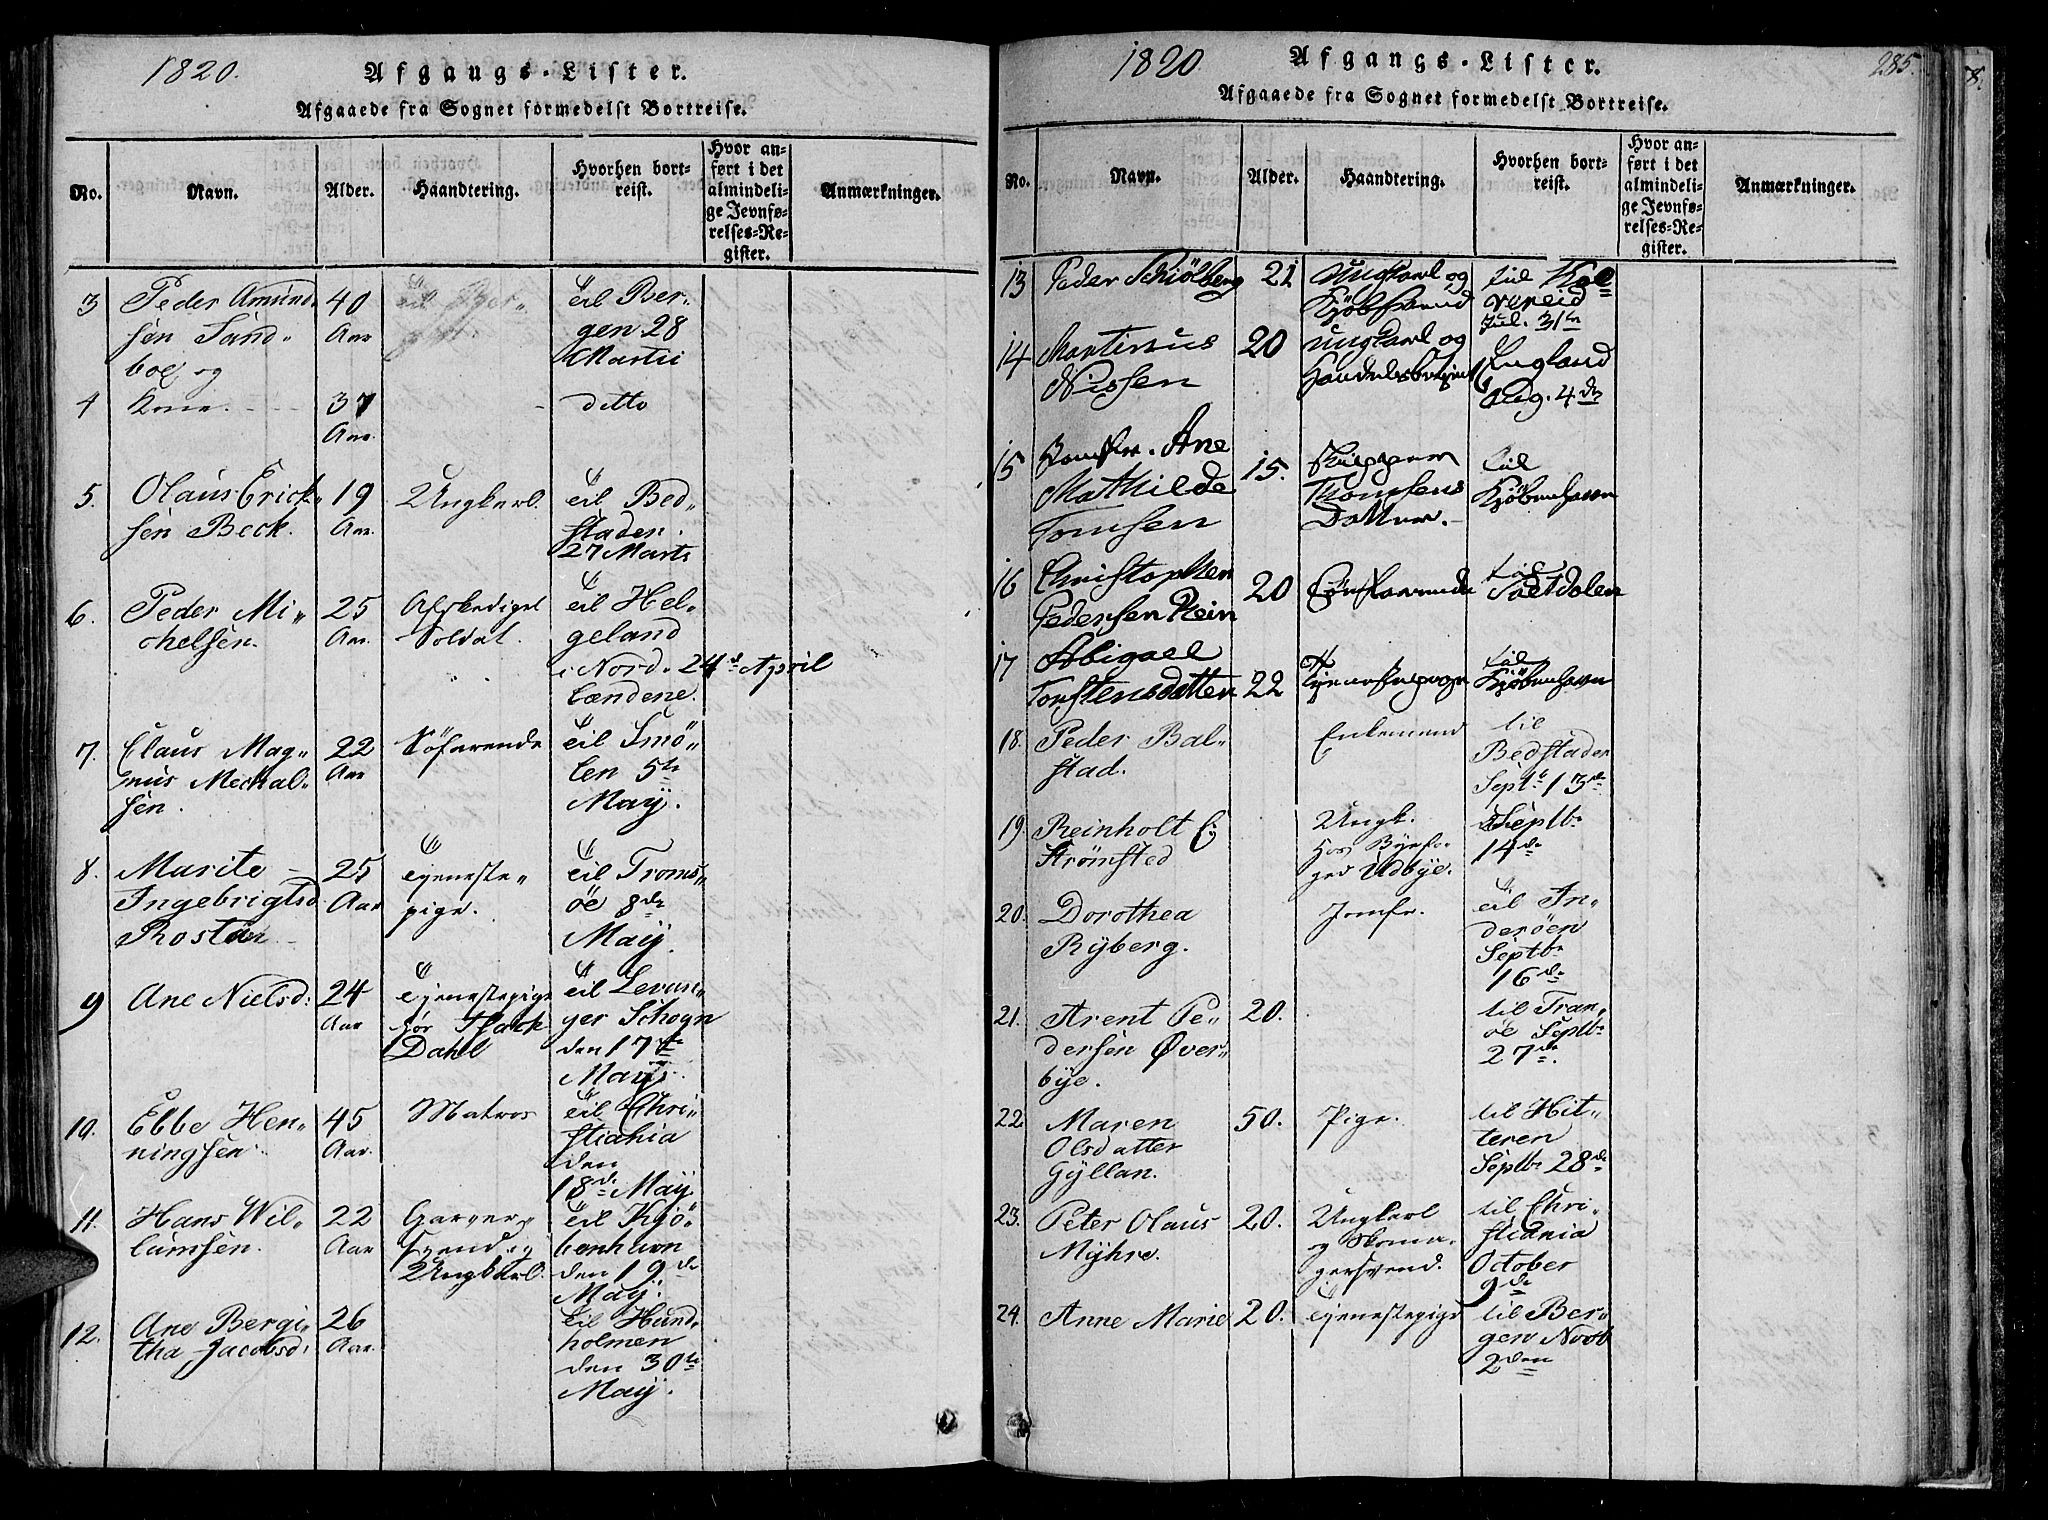 1820.
Afgangs-Lister.
Afgaaede fra Sognet formedelst Bortreise.
No.
Navn.
Alder.
Haandtering.
Hvorhen bort-
reist.
Hvor an-
ført i det
almindeli-
ge Jevnfø-
relses-Re-
gister.
Anmærkninger.
3
Peder Amund-
sen Sand-
boe og
40
Aar
til Ber-
gen 28
Martii
4
Kone.
37
Aar.
ditto
5.
Olaus Erick-
sen Beck.
19
Aar.
Ungkarl.
til Bed-
stader.
27 Marts
6.
Peder Mi-
chelsen.
25
Aar.
Afskediget
Soldat.
til Hel-
geland
i Nord- 24de April
Lændene.
7.
Claus Mag-
nus Mechal-
sen.
22
Aar
Søfarende
til Smø-
len 5te
May.
8.
Marite
Ingebrigtsd.
Rostan
25
Aar
tjeneste-
pige.
til Troms-
öe 8de
May.
9
Ane Nielsd:
24
Aar
tjenestepige
for
Dahl
til Levan-
ger Schogn
den 17de
May.
10.
Ebbe Hen-
ningsen.
45
Aar.
Matros
til Chri-
stiania
den
18de May
11.
Hans Wil-
lumsen.
22
Aar
Garver-
svend og
Ungkarl.
til Kjö-
benhavn
den 19de
May.
12.
Ane Bergi-
tha Jacobsd:
26
Aar.
til Hund-
holmen
den 30te
May.
1820
Afgangs-Lister.
285.
Afgaaede fra Sognet formedelst Bortreise.
No.
Navn.
Alder.
Haandtering.
Hvorhen bort-
reist.
Hvor an-
ført i det
almindeli-
ge Jevnfø-
relses-Re-
gister.
Anmærkninger.
13
Peder Schiölberg
21
Ungkarl og
Kjöbsvend
til Kol-
vereid
Jul. 31te
14
Martinus
Nissen
20
ungkarl og
Handelsbetjent
England
Aug. 4de
15
Jomfr. Ane
Mathilde
Tomsen
15.
Skipper
Thomsens
Datter.
til
Kjöbenhavn
16
Christopher
Pedersen Rein
20
Söefarende
til
Soetdalen
17
Abigael
Torstensdatter
22
Tjenestepige
til
Kjöbenhavn
18.
Peder Bal-
stad.
Enkemand
til
Bedstader
Septb 13de
19.
Reinholt E
Strømsted
Ungk.
hos Byefo-
ged Udbye.
Septb.
14de
20.
Dorothea
Ryberg.
Jomfr.
til In-
deröen
Septb.
16de
21.
Arent Pe-
dersen Øver-
bye.
20.
til Tran-
öe Septb.
27de.
22.
Maren
Olsdatter
Gyllan.
50.
Pige.
til Hit-
teren
Septb. 28de
23.
Peter Olaus
Myhre.
20.
Ungkarl
og Skoma-
gersvend.
til Chri-
stiania
October
9de
24.
Anne Marie
20.
tjenestepige
til Ber-
gen Novb
2den